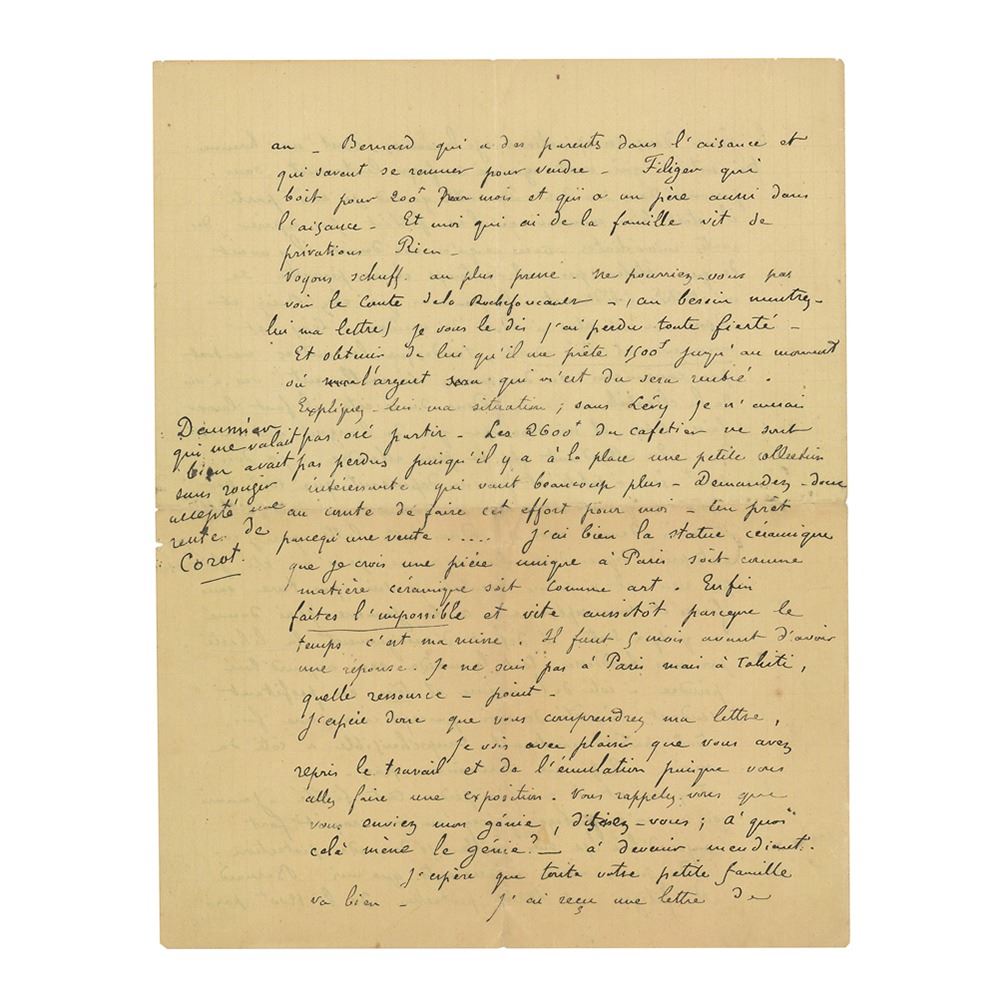 an - Bernard qui a des parents dans l'aisance et
qui savent se remuer pour vendre - Filiger qui
boit pour 200f par mois et qui a un père aussi dans
l'aisance - Et moi qui ai de la famille vit de
privations Rien -
Voyons Schuff. au plus pressé. Ne pourriez-vous pas
voir le Comte de la Rochefoucault - (au besoin montrez-
lui ma lettre) je vous le dis j'ai perdu toute fierté -
Et obtenir de lui qu'il me prête 1500f jusqu'au moment
où l'argent qui m'est du sera rentré.
Expliquez-lui ma situation ; sans Lévy je n'aurais
pas osé partir - Les 2600f du cafetier ne sont
pas perdus puisqu'il y a à la place une petite collection
intéressante qui vaut beaucoup plus - Demandez-donc
au comte de faire cet effort pour moi - Un prêt
parcequ'une vente ..... J'ai bien la statue céramique
que je crois une pièce unique à Paris soit comme
matière céramique soit comme art. Enfin
faites l'impossible et vite aussitôt parceque le
temps c'est ma ruine. Il faut 5 mois avant d'avoir
une réponse. Je ne suis pas à Paris mais à Tahiti,
quelle ressource - point -
J'espère donc que vous comprendrez ma lettre,
Je vois avec plaisir que vous avez
repris le travail et de l'émulation puisque vous
allez faire une exposition. Vous rappelez-vous que
vous enviez mon génie, disiez-vous ; à quoi
celà mène le génie? - à devenir mendiant.
J'espère que toute votre petite famille
va bien - J'ai reçu une lettre de
Daumier
qui me valait
bien avait
sans rougir
accepté une
rente de
Corot.